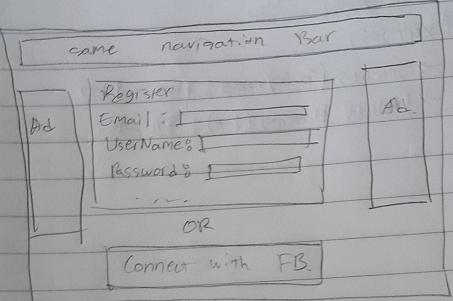 same navigation Bar
Register
Ad
Email :
Ad
UserName:
Password:
....
OR
Connect with FB.